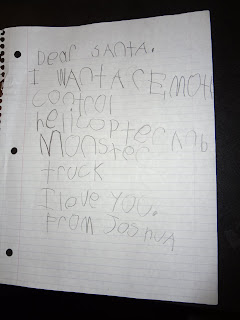 Dear SANTA.
I WANT A REMOTE
control
helicopter AND
Monster
truck
I love YOU.
From JoshuA